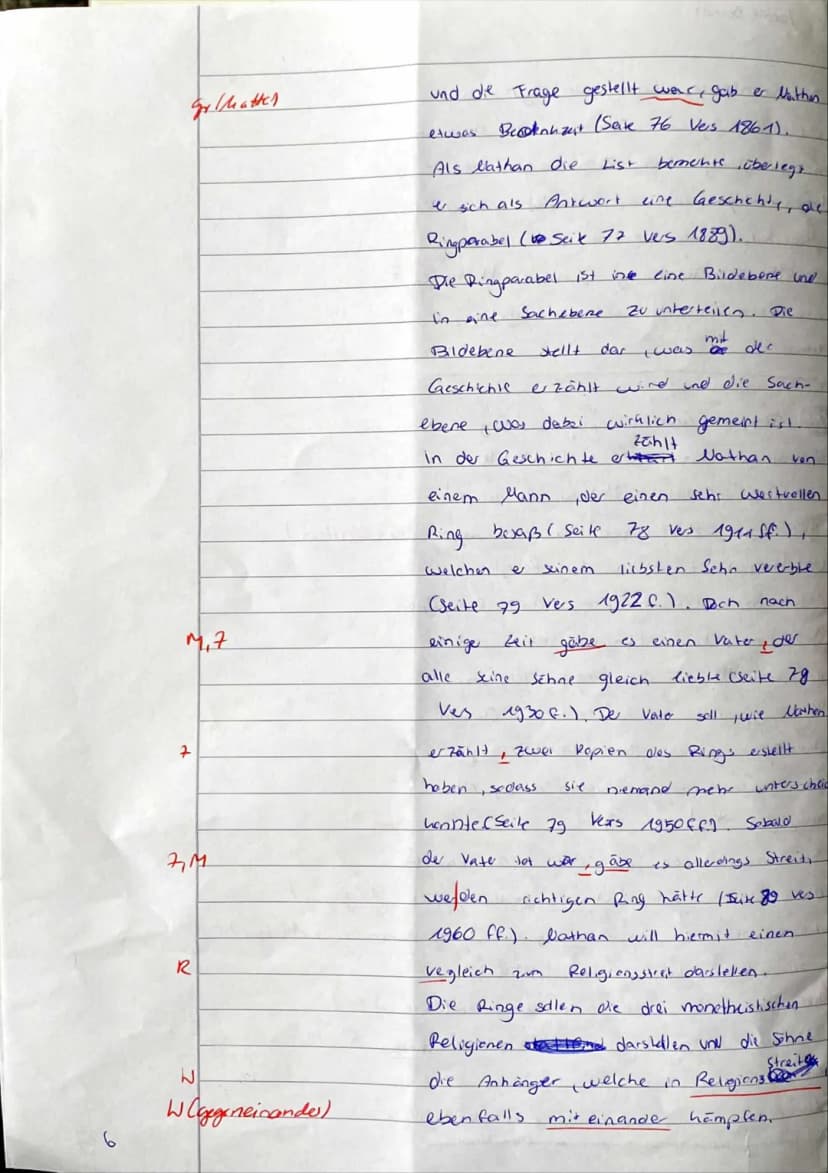 gr(hatte) und die Frage gestellt war, gab er Nathan
etwas Bedenkzeit (Seite 76 Vers 1861).
Als Nathan die List bemerkte, überlegt
er sich als Antwort eine Geschichte, die
Ringparabel (Seite 77 Vers 1889).
Die Ringparabel ist in eine Bildebene und
in eine Sachebene zu unterteilen. Die
Bildebene stellt dar, was mit der
Geschichte erzählt wird und die Sach-
ebene, was dabei wirklich gemeint ist.
In der Geschichte erzählt Nathan von
einem Mann, der einen sehr wertvollen
Ring besaß (Seite 78 Vers 1911 ff.),
welchen er seinem liebsten Sohn vererbte
(Seite 79 Vers 1922 f.). Doch nach
M, Z einige Zeit gäbe es einen Vater, der
alle seine Söhne gleich liebte (Seite 79
Vers 1930 f.). Der Vater soll, wie Nathan
Z erzählt, zwei Kopien des Rings erstellt
haben, sodass sie niemand mehr unterschei
konnte (Seite 79 Vers 1950 ff). Sobald
Z, M der Vater tot wär, gäbe es allerdings Streit,
wer den richtigen Ring hätte (Seite 80 Vers
1960 ff.). Nathan will hiermit einen
R vegleich zum Religionsstreit darstellen.
Die Ringe sollen die drei monotheistischen
Religionen darstellen und die Söhne
W die Anhänger, welche in Religionsstreits
W (gegeneinander) ebenfalls miteinander kämpfen.
6